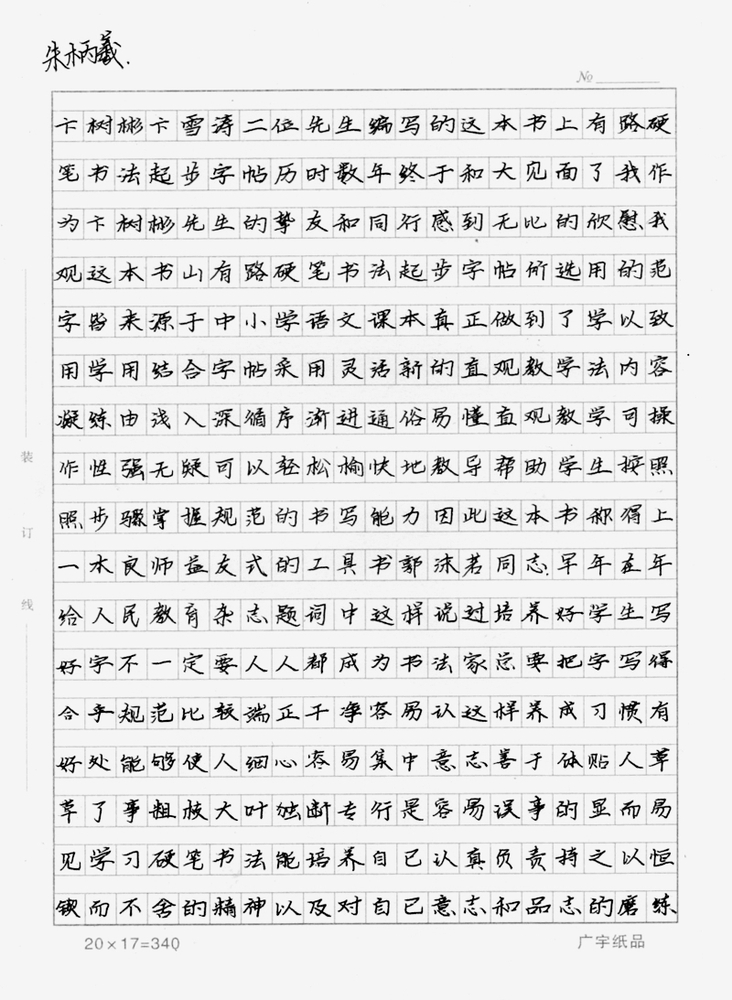 朱炳羲.
№
卞树彬卞雪涛二位先生编写的这本书上有路硬
笔书法起步字帖历时数年终于和大见面了我作
为卞树彬先生的挚友和同行感到无比的欣慰我
观这本书山有路硬笔书法起步字帖所选用的范
字皆来源于中小学语文课本真正做到了学以致
用学用结合字帖采用灵活新的直观教学法内容
凝练由浅入深循序渐进通俗易懂直观教学可操
作性强无疑可以轻松愉快地教导帮助学生按照
照步骤掌握规范的书写能力因此这本书称得上
一本良师益友式的工具书郭沫若同志早年在年
给人民教育杂志题词中这样说过培养好学生写
好字不一定要人人都成为书法家总要把字写得
合乎规范比较端正干净容易认这样养成习惯有
好处能够使人细心容易集中意志善于体贴人草
草了事粗枝大叶独断专行是容易误事的显而易
见学习硬笔书法能培养自己认真负责持之以恒
锲而不舍的精神以及对自己意志和品志的磨练
装
订
线
20×17=340
广宇纸品